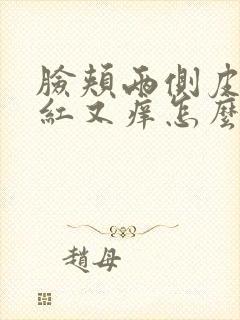 臉頰兩側皮
紅又痒怎麼
趙母